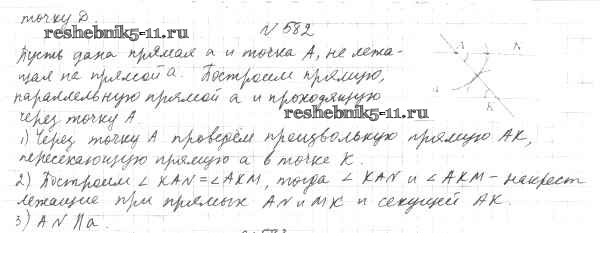 точку D.
reshebnik5-11.ru
N 582
Пусть дана прямая a и точка A, не лежа-
щая на прямой a. Построим прямую,
параллельную прямой a и проходящую
через точку A.
reshebnik5-11.ru
1) Через точку A проведём произвольную прямую AK,
пересекающую прямую a в точке K.
2) Построим ∠ KAN = ∠ AKM, тогда ∠ KAN и ∠ AKM - накрест
лежащие при прямых AN и MK и секущей AK.
3) AN || a.
A
K